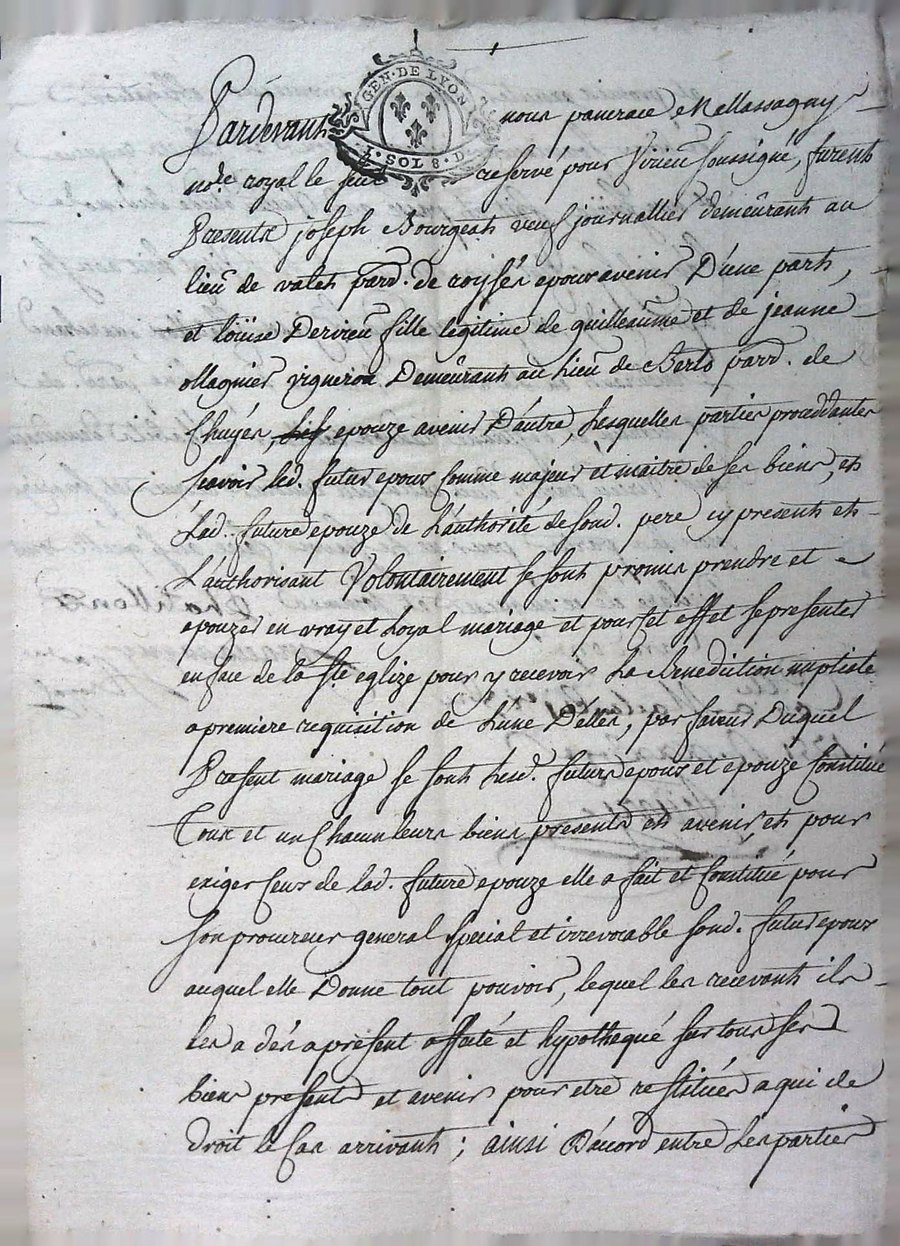 GEN·DE LYON
1·SOL 8·D
Pardevant nous pancrace Mallassagny
no.re royal le seul reservé pour Virieu soussigné, furent
Presents joseph Bourgeat veuf journallier demeurant au
lieu de valet parr. de roysses epoux avenir D'une part,
et loüise Dervieu fille legitime de guilleaume et de jeanne
ollagnier vigneron Demeurant au lieu de Berlo parr. de
Chuyer, epouze avenir D'autre, Lesquelles parties procedantes
scavoir led. futur epoux Comme majeur et maitre de ses biens, et
Lad. future epouze de L'authorité de sond. pere cy present et
L'authorisant Volontairement se sont promis prendre et
epouzer en vray et Loyal mariage et pour cet effet se presenter
en face de la s.te eglize pour y recevoir La Benediction nuptiale
a premiere requisition de Lune D'elles, par faveur Duquel
Present mariage se sont Lesd. futurs epoux et epouze Constitué
Tous et un Chacun leurs biens presents et avenir, et pour
exiger Ceux de lad. future epouze elle a fait et Constitué pour
son procureur general special et irrevocable sond. futur epoux
auquel elle Donne tout pouvoir, lequel les recevant ils
les a dés a present affecté et hypothequé sur tous ses
biens presents et avenir pour etre restitués a qui de
droit le Cas arrivant ; ainsi D'acord entre Les parties